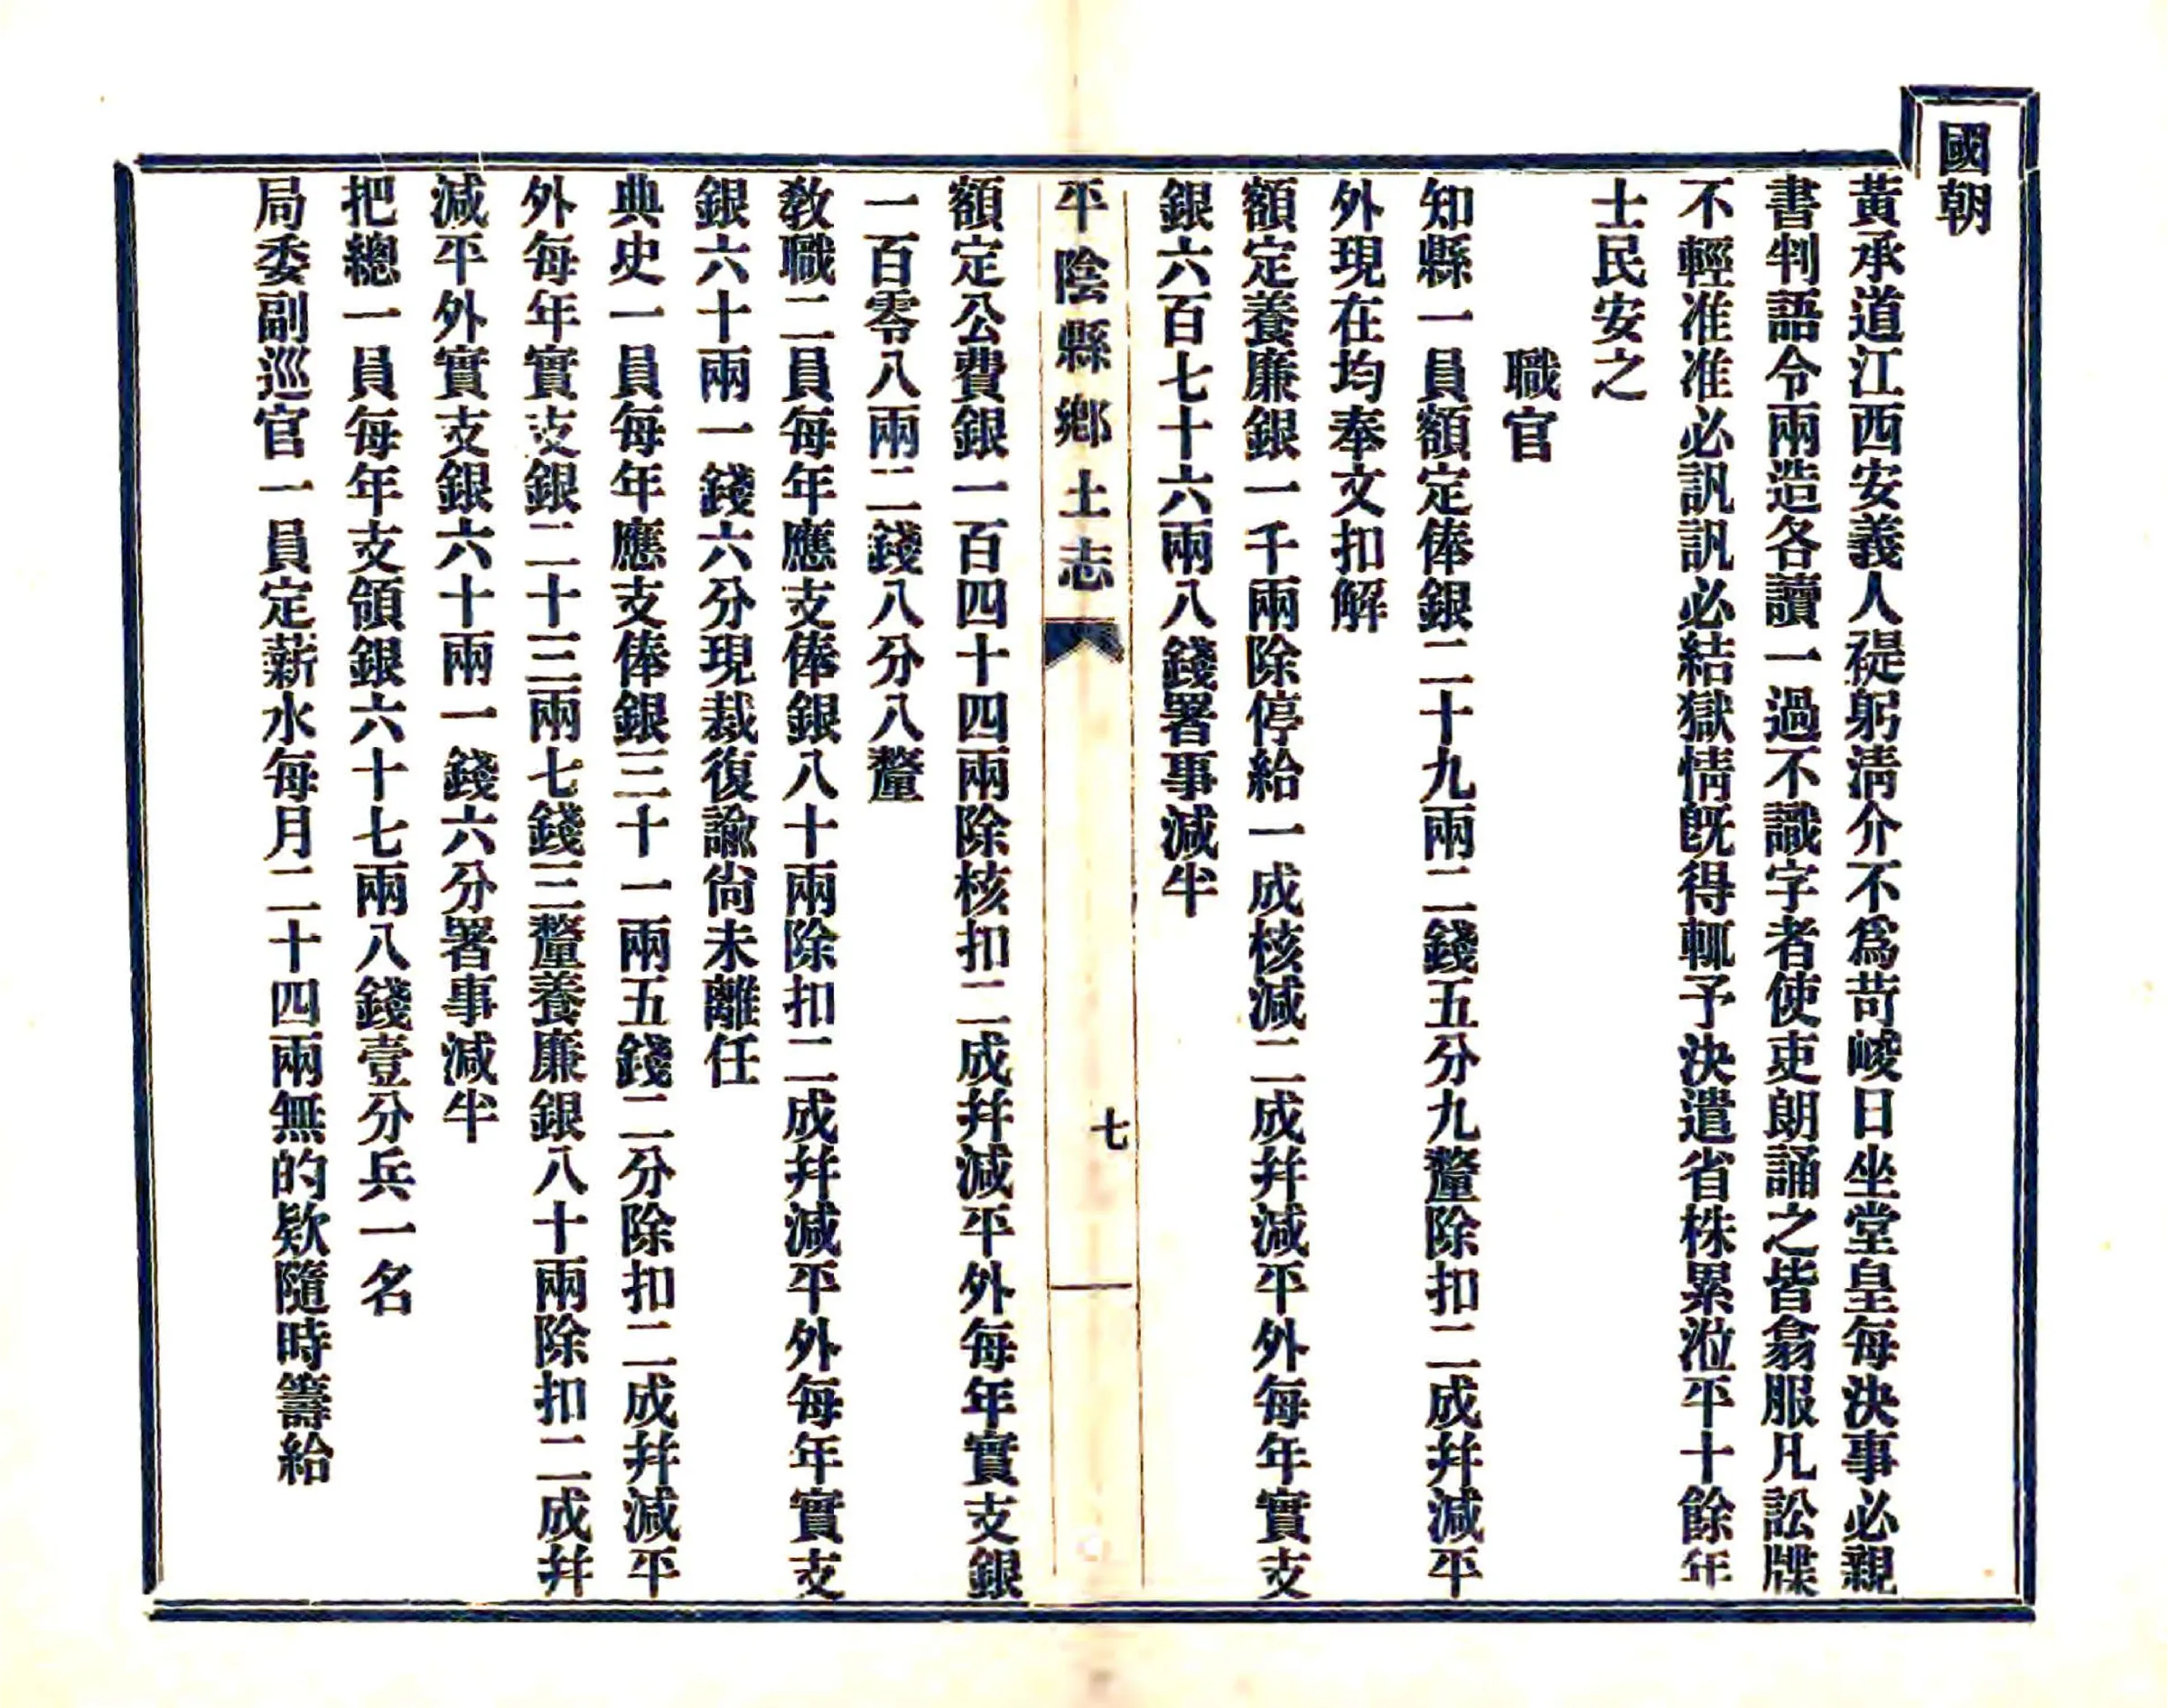 國朝
黃承道江西安義人禔躬淸介不爲苛峻日坐堂皇每決事必親
書判語令兩造各讀一過不識字者使吏朗誦之皆翕服凡訟牒
不輕准准必訊訊必結獄情旣得輒予決遣省株累涖平十餘年
士民安之
職官
知縣一員額定俸銀二十九兩二錢五分九釐除扣二成幷減平
外現在均奉文扣解
額定養廉銀一千兩除停給一成核減二成幷減平外每年實支
銀六百七十六兩八錢署事減半
平陰縣鄉土志
七
額定公費銀一百四十四兩除核扣二成幷減平外每年實支銀
一百零八兩二錢八分八釐
敎職二員每年應支俸銀八十兩除扣二成幷減平外每年實支
銀六十兩一錢六分現裁復諭尙未離任
典史一員每年應支俸銀三十一兩五錢二分除扣二成幷減平
外每年實支銀二十三兩七錢三釐養廉銀八十兩除扣二成幷
減平外實支銀六十兩一錢六分署事減半
把總一員每年支領銀六十七兩八錢壹分兵一名
局委副巡官一員定薪水每月二十四兩無的欵隨時籌給